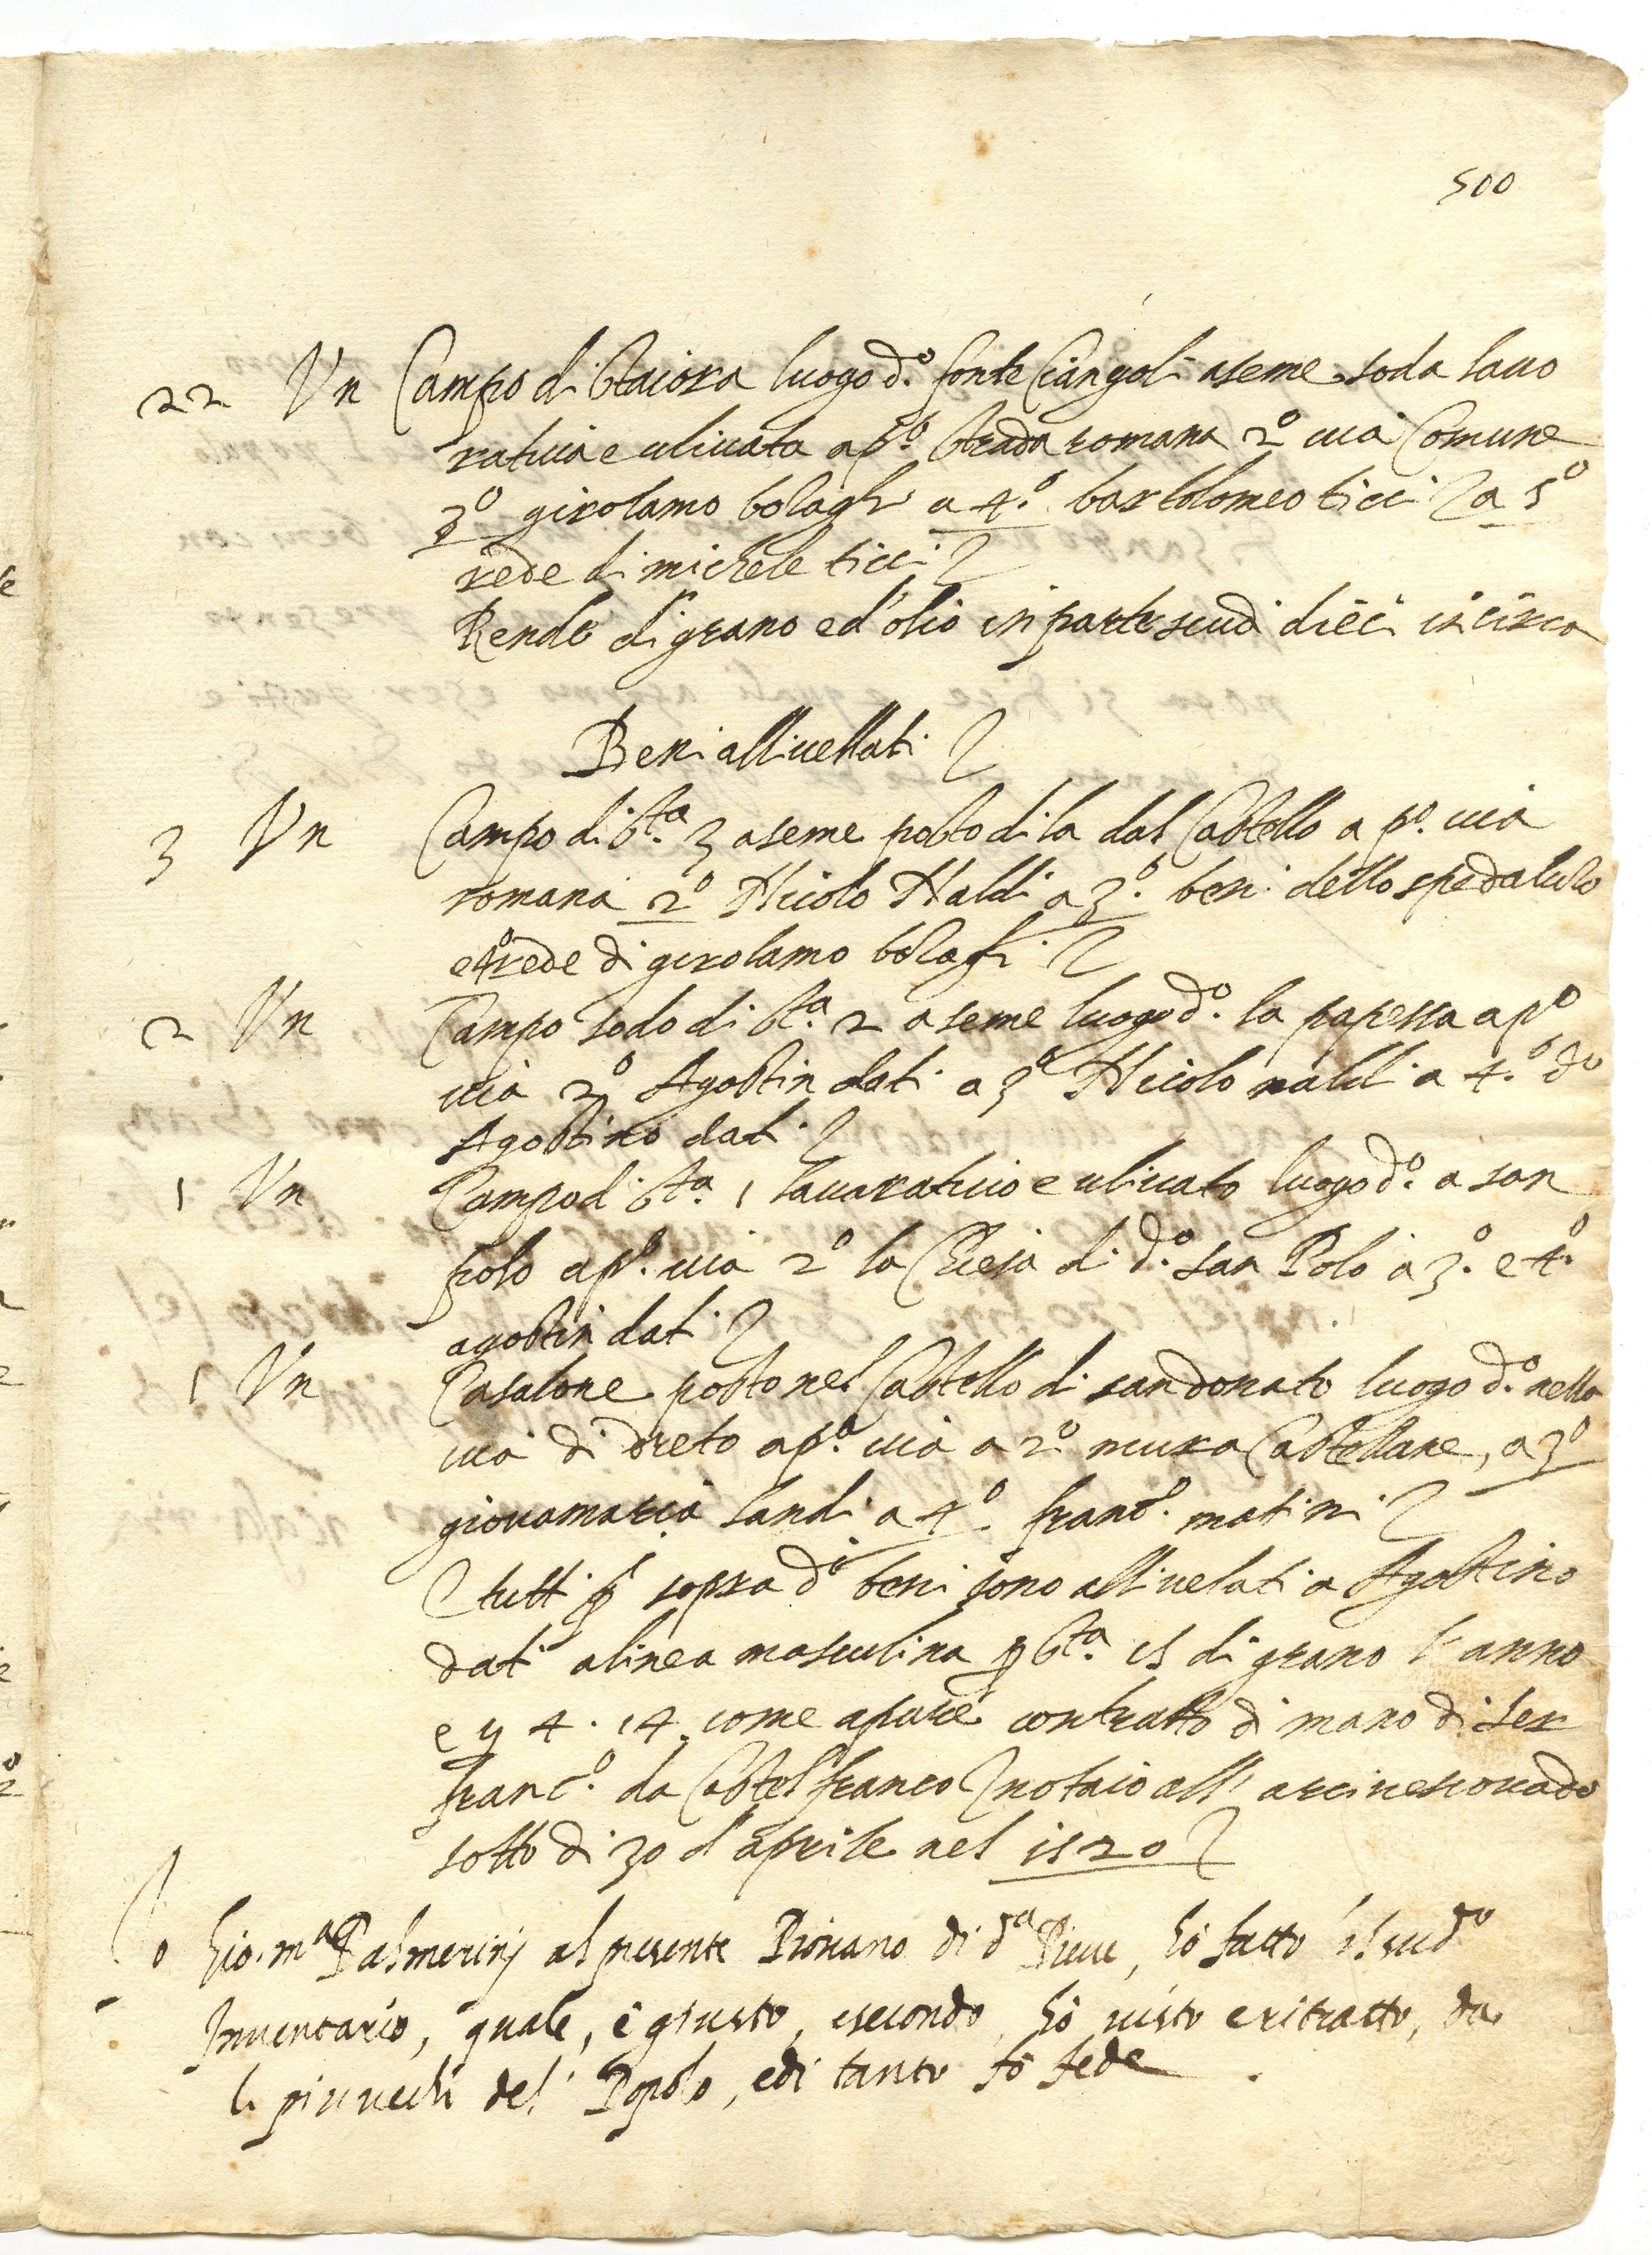 500
22 Vn Campo di staiora luogo d.º fonte Ciangoli aseme soda lauo
ratiua e uliuata a p.º strada romana 2º uia Comune
3º girolamo bolagli a 4.º bartolomeo ticci a 5º
rede di michele ticci
Rende di grano ed'olio in parte scudi dieci in circa
Beni alliuellati
3 Vn Campo di st.ª 3 aseme posto di la dal Castello a p.º uia
romana 2º Nicolo Naldi a 3.º beni dello spedaluло
e 4º rede di girolamo bolagli
2 Vn Campo sodo di st.ª 2 a seme luogo d.º la papessa a p.º
uia 2º Agostin dati a 3º Nicolo naldi a 4.º d.º
Agostino dati
1 Vn Campo di st.ª 1 lauoratiuo e uliuato luogo d.º a san
polo a p.º uia 2º la Chiesa di d.º san Polo a 3.º e 4.º
agostin dati
1 Vn Casalone posto nel Castello di san donato luogo d.º nella
uia di dreto a p.ª uia a 2º mura Castellane, a 3º
giouamaria Landi a 4º franc.º matini
tutti sopra d.i beni sono alliuelati a Agostino
dati a linea masculina p st.ª 15 di grano l'anno
e 4 . 14 come apare contratto di mano di ser
franc.º da Castel franco notaio all' arciuescouado
sotto di 30 d'aprile nel 1520
Io Gio. m.ª Palmerinj al presente Piouano di d.ª Pieue, hò fatto il sud.º
Inuentario, quale, è giusto, esecondo, hò uisto e ritratto, da
li piu uechi del' Popolo, edi tanto fò fede